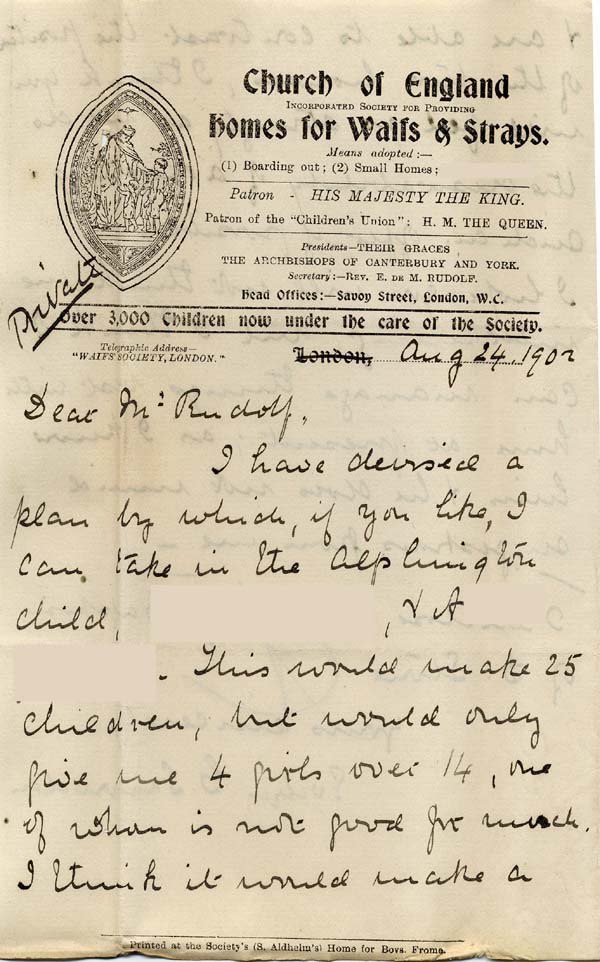 Church of England
Incorporated Society for Providing
Homes for Waifs & Strays.
Means adopted:—
(1) Boarding out; (2) Small Homes;
Patron - HIS MAJESTY THE KING.
Patron of the "Children's Union": H. M. THE QUEEN.
Presidents—THEIR GRACES
THE ARCHBISHOPS OF CANTERBURY AND YORK.
Secretary:—Rev. E. de M. RUDOLF.
Head Offices:—Savoy Street, London, W.C.
Private
Over 3,000 Children now under the care of the Society.
Telegraphic Address—
"WAIFS' SOCIETY, LONDON."
London, Aug 24, 1902
Dear Mr Rudolf,
I have devised a
plan by which, if you like, I
can take in the Alphington
child, , & A
. This would make 25
children, but would only
give me 4 girls over 14, one
of whom is not good for much.
I think it would make a
Printed at the Society's (S. Aldhelm's) Home for Boys. Frome.